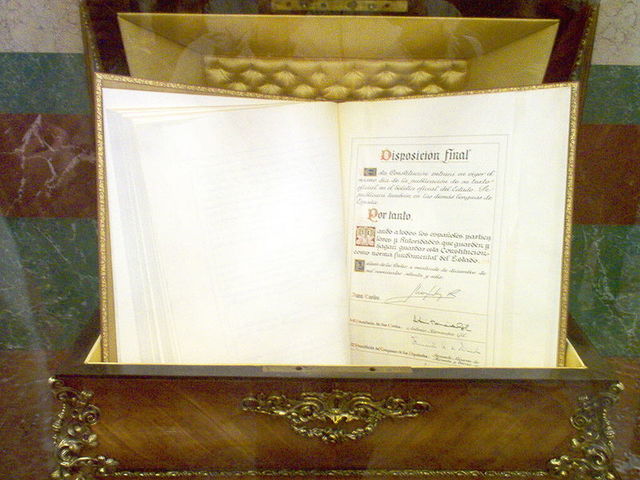 Disposicion final
Esta Constitución entrará en vigor el
mismo día de la publicación de su texto
oficial en el boletín oficial del Estado. Se
publicará también en las demás lenguas de
España
Por tanto
Mando a todos los españoles, particu
lares y Autoridades, que guarden y
hagan guardar esta Constitucion
como norma fundamental del Estado.
Palacio de las Cortes, a veintisiete de diciembre de
mil novecientos setenta y ocho.
Juan Carlos
El Presidente de las Cortes
Antonio Hernández Gil
El Presidente del Congreso de los Diputados